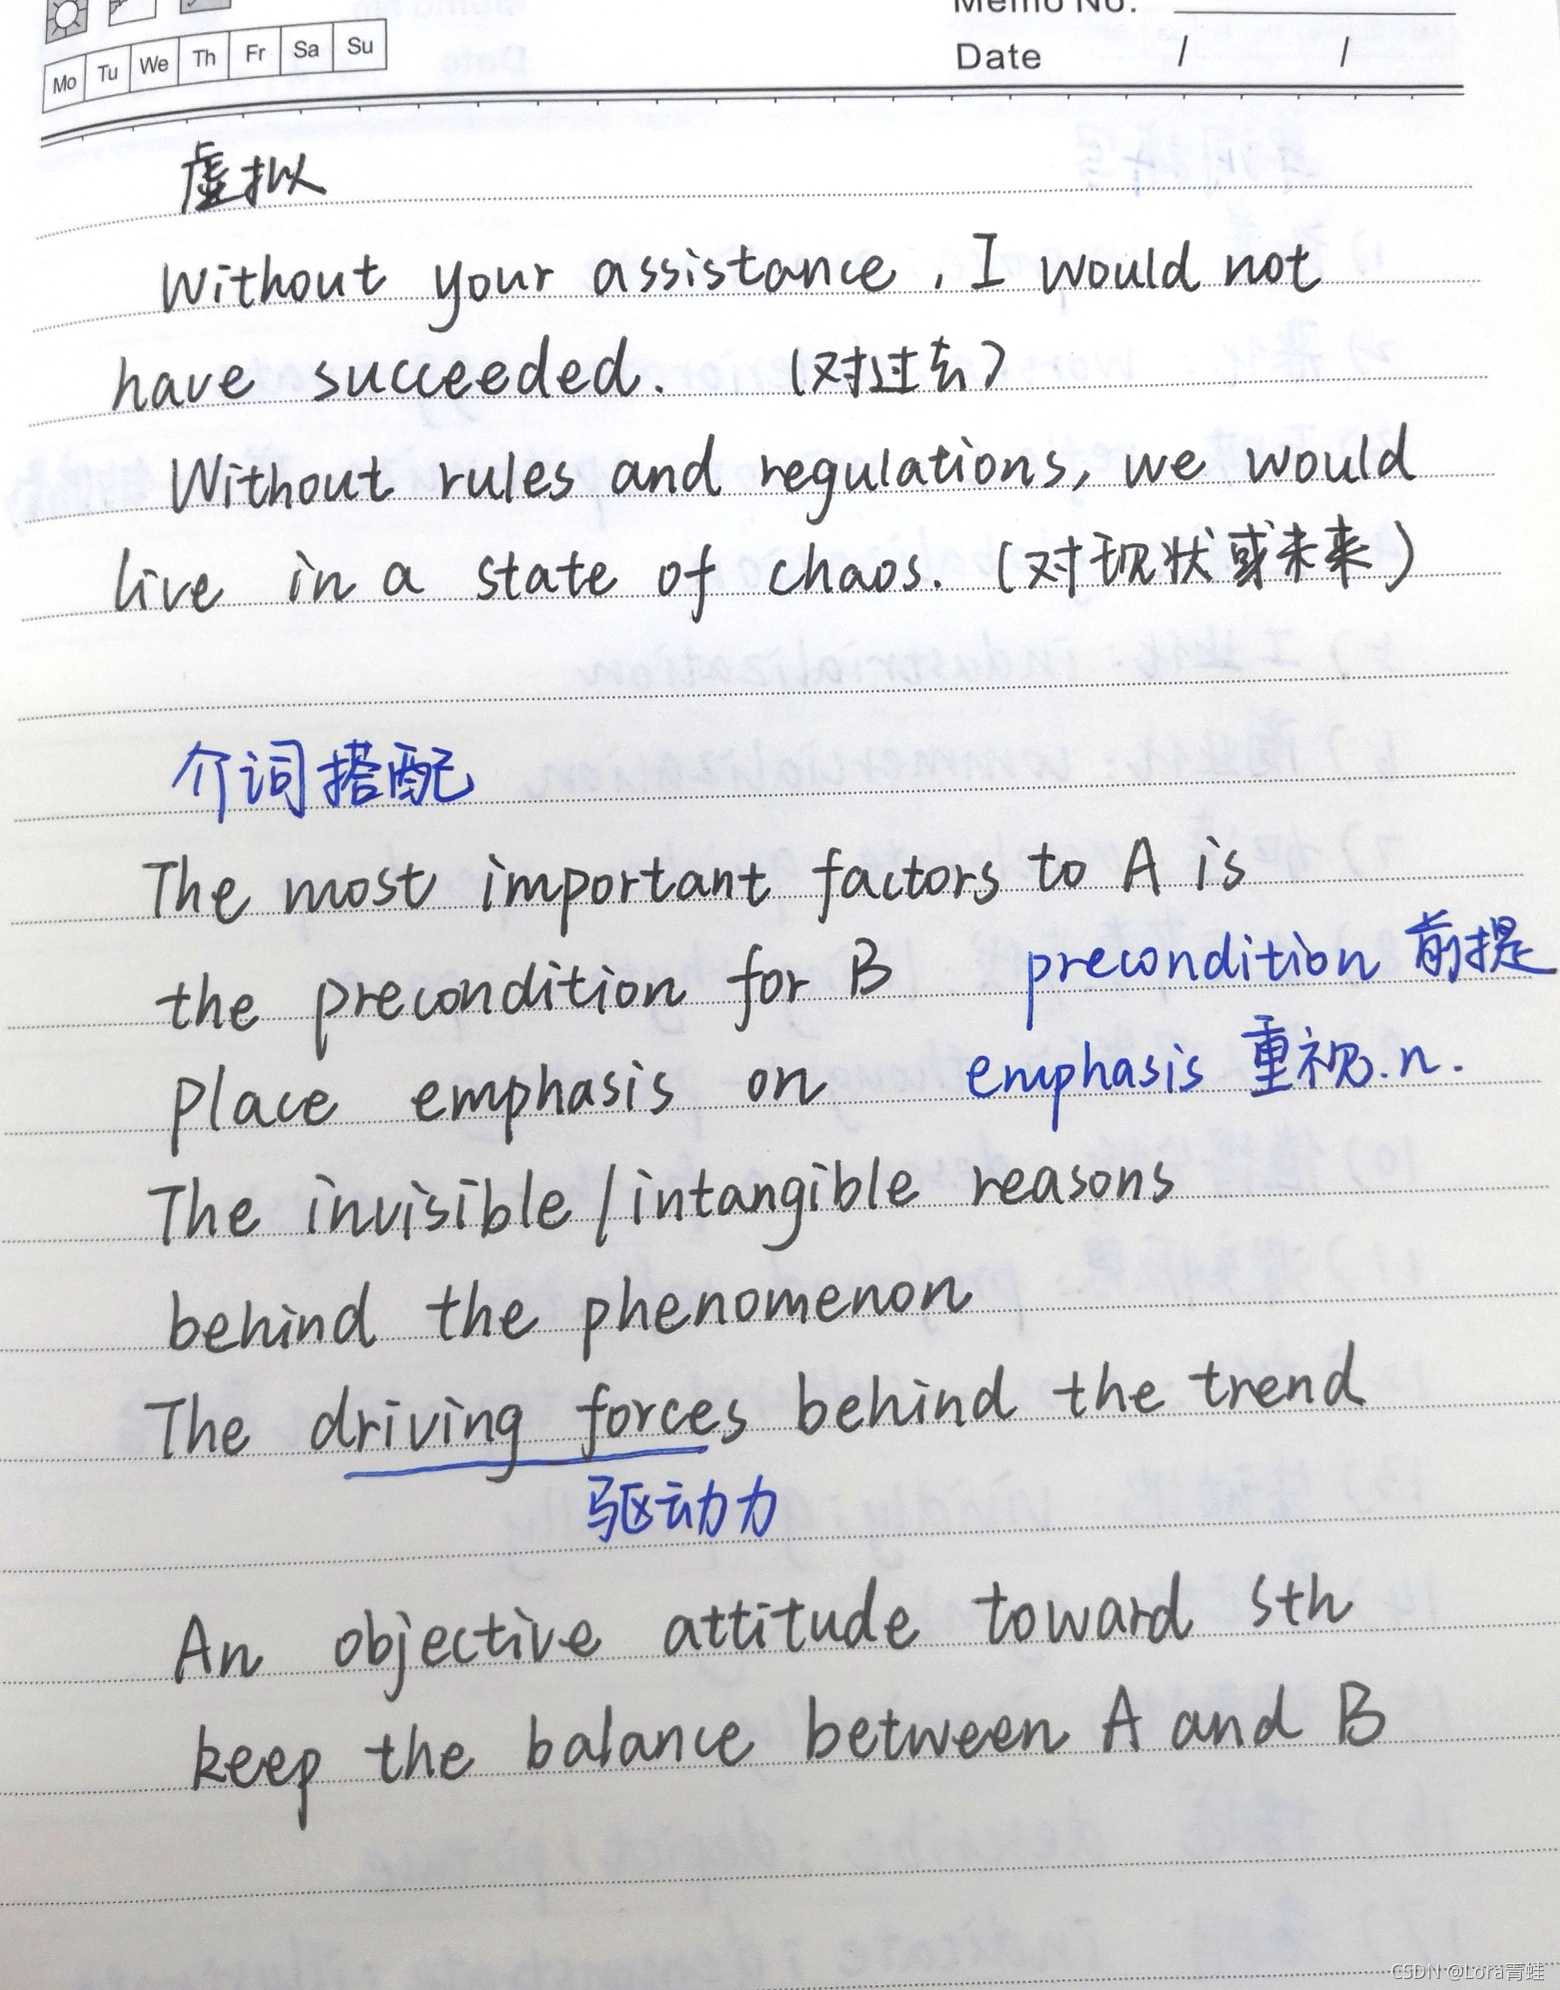 Memo No.
Mo Tu We Th Fr Sa Su
Date / /
虚拟
Without your assistance, I would not
have succeeded. (对过去)
Without rules and regulations, we would
live in a state of chaos. (对现状或未来)
介词搭配
The most important factors to A is
the precondition for B precondition 前提
Place emphasis on emphasis 重视.n.
The invisible/intangible reasons
behind the phenomenon
The driving forces behind the trend
驱动力
An objective attitude toward sth
keep the balance between A and B
CSDN @Lora青蛙